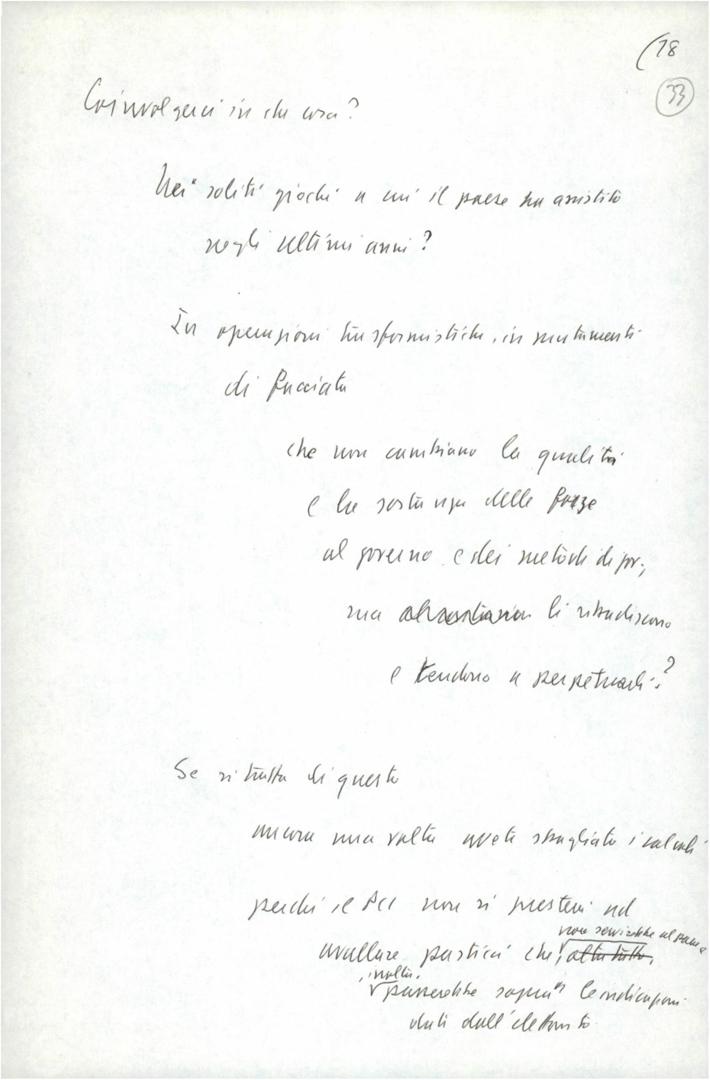 (18
33
Coinvolgerci in che cosa?
Nei soliti giochi a cui il paese ha assistito
negli ultimi anni?
In operazioni trasformistiche, in mutamenti
di facciata
che non cambiano la qualità
e la sostanza delle forze
al governo e dei metodi di gov.,
ma li ribadiscono
e tendono a perpetuarli?
Se si tratta di questo
ancora una volta avete sbagliato i calcoli
perché il PCI non si presterà ad
non servirebbe al paese
avallare pasticci che, altro tutto,
inoltre,
passerebbe sopra le indicazioni
dati dall'elettorato